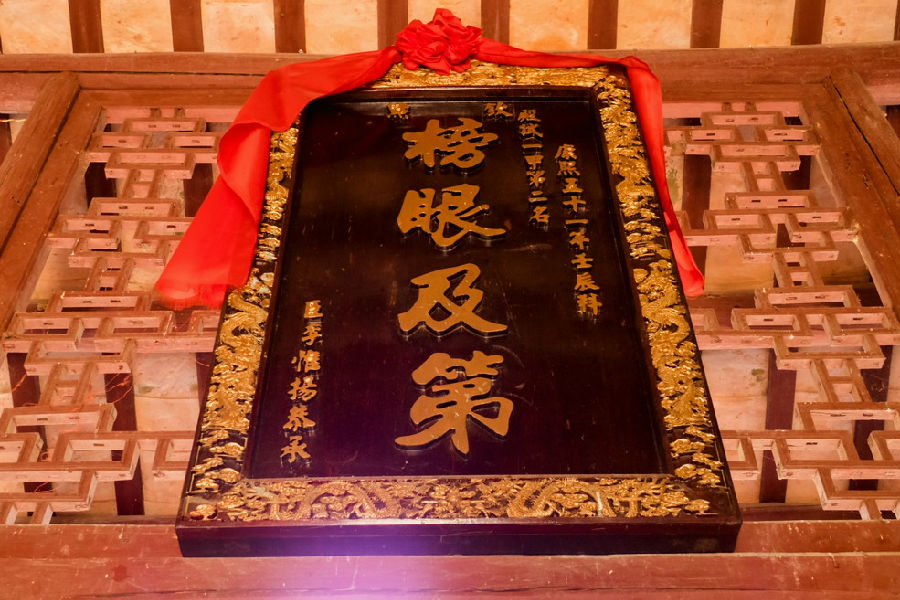 欽點
康熙五十一年壬辰科
殿試一甲第二名
榜眼及第
臣李惟揚恭承